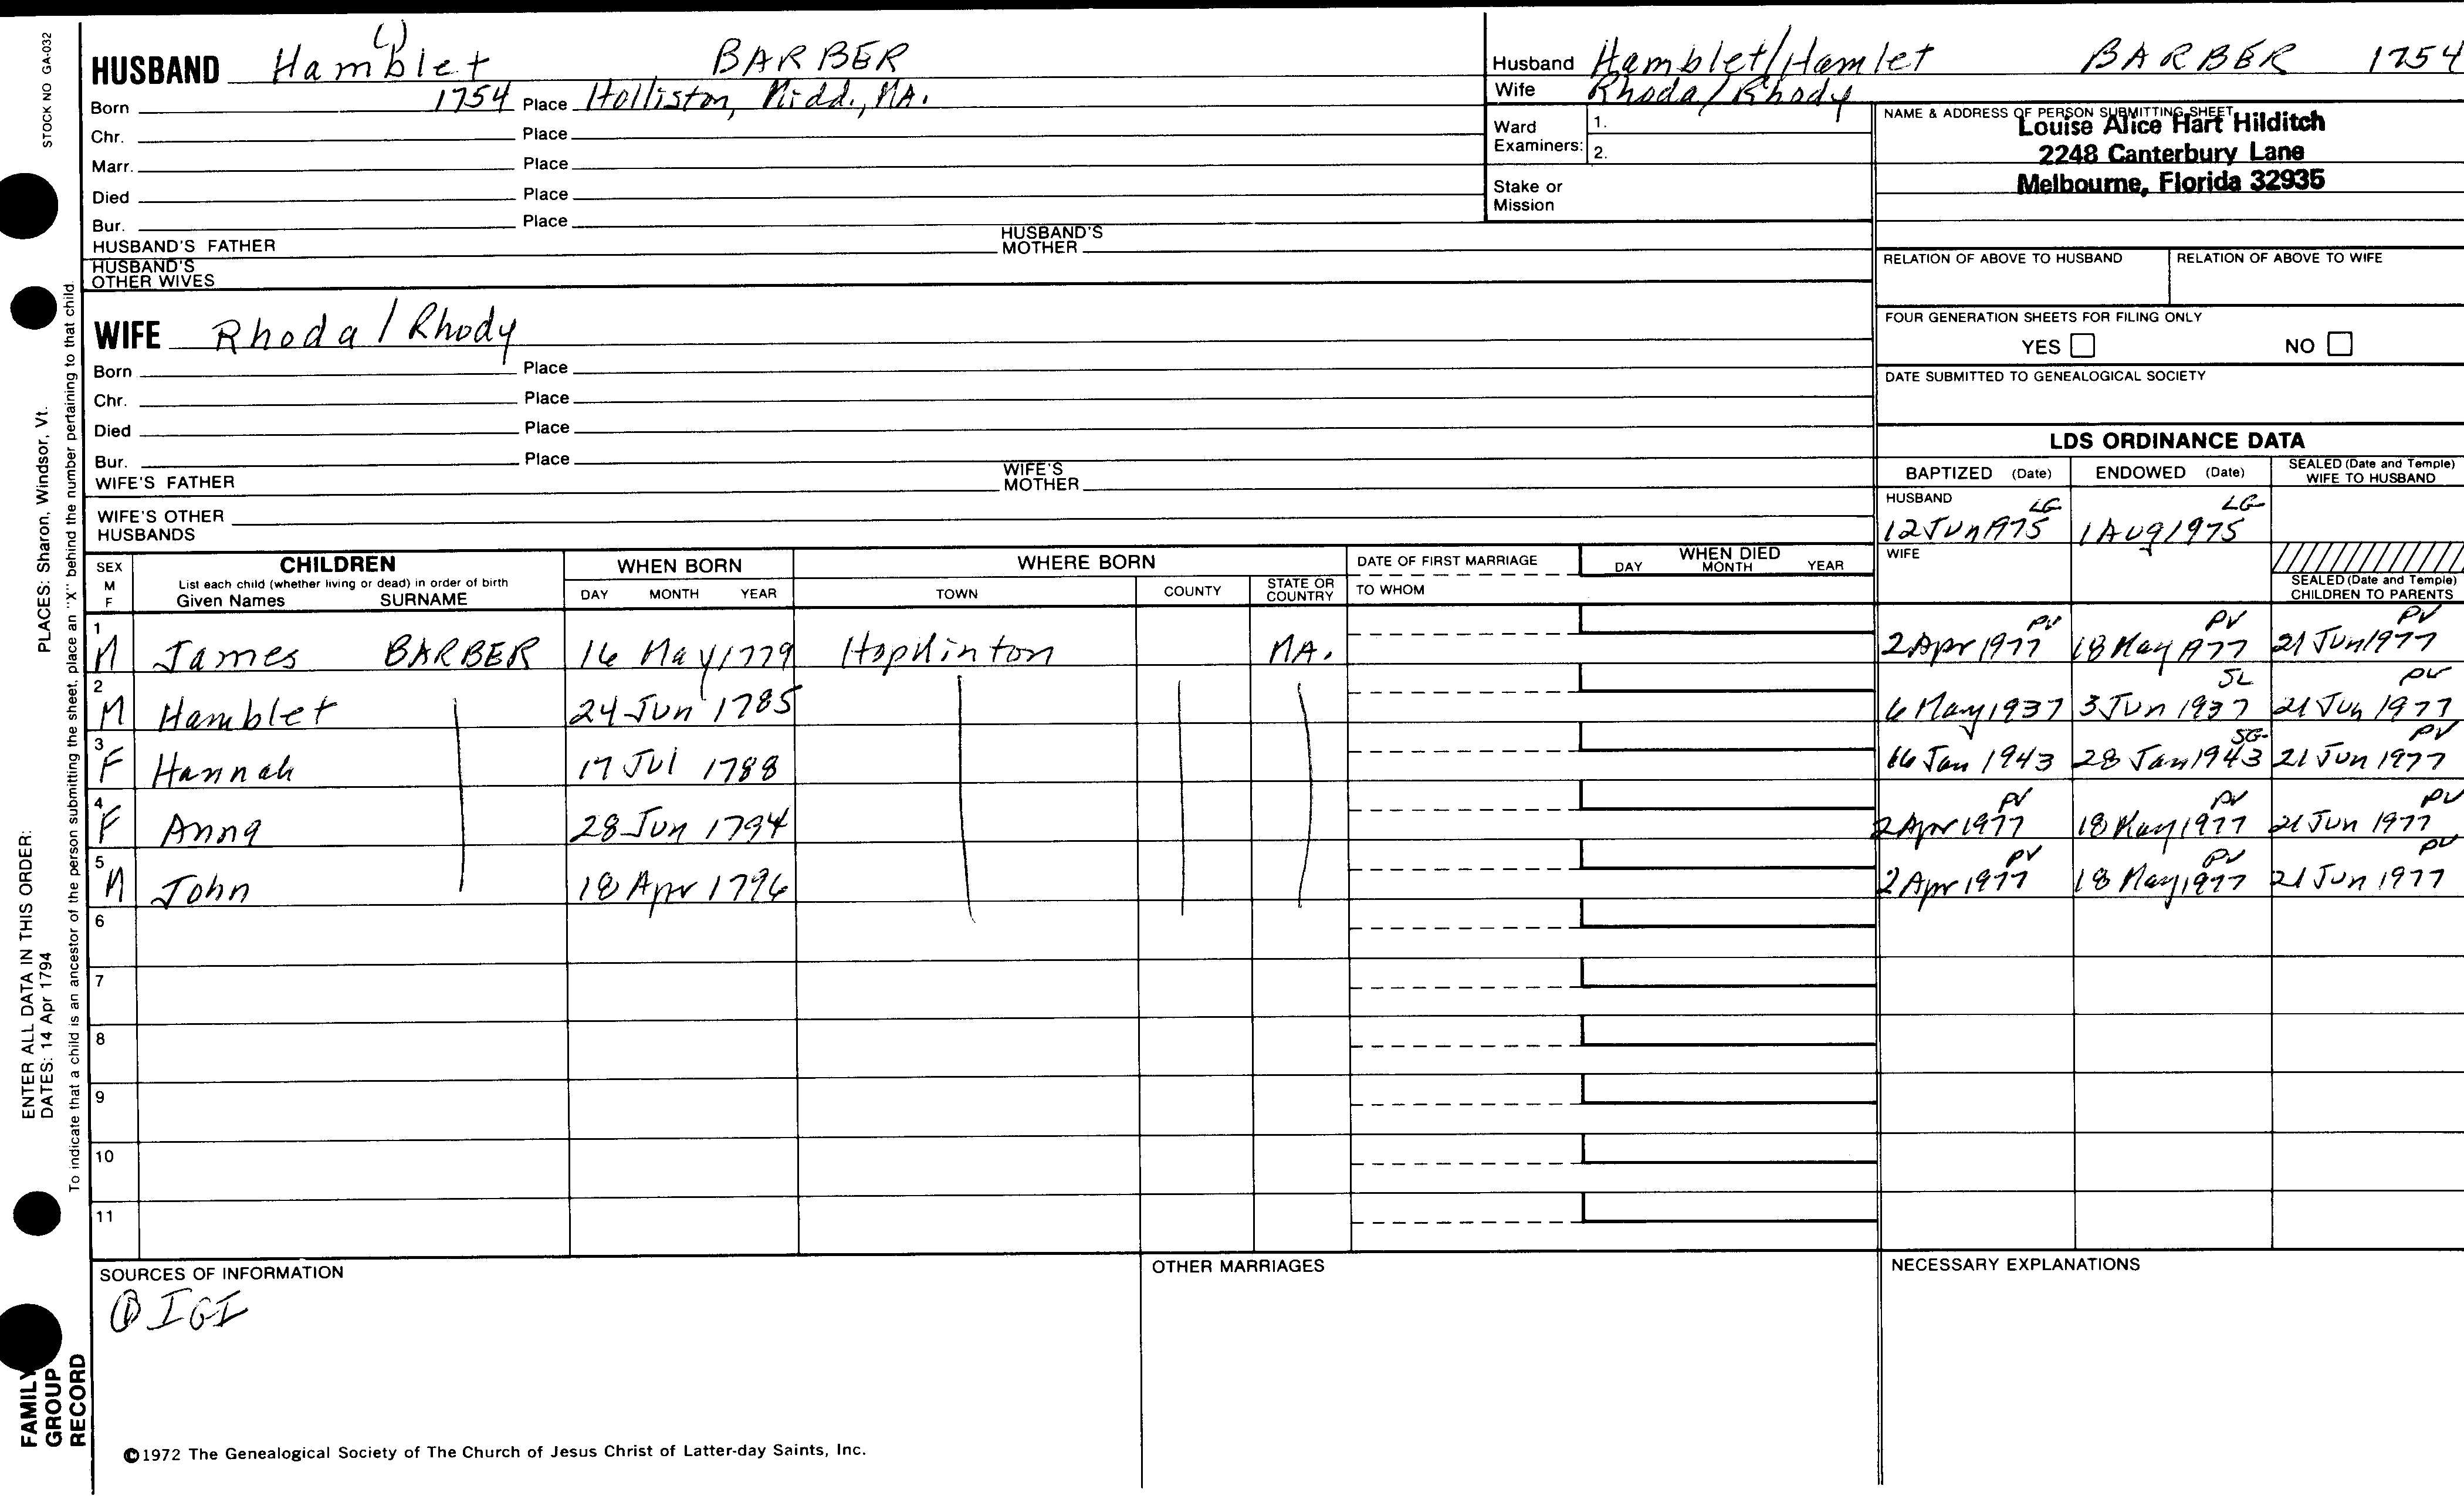 STOCK NO GA-032
(1)
HUSBAND Hamblet BARBER
Born 1754 Place Holliston, Midd., MA.
Chr. Place
Marr. Place
Died Place
Bur. Place
HUSBAND'S FATHER HUSBAND'S MOTHER
HUSBAND'S OTHER WIVES
Husband Hamblet/Hamlet BARBER 1754
Wife Rhoda/Rhody
Ward Examiners: 1.
2.
Stake or Mission
NAME & ADDRESS OF PERSON SUBMITTING SHEET
Louise Alice Hart Hilditch
2248 Canterbury Lane
Melbourne, Florida 32935
RELATION OF ABOVE TO HUSBAND RELATION OF ABOVE TO WIFE
FOUR GENERATION SHEETS FOR FILING ONLY
YES NO
DATE SUBMITTED TO GENEALOGICAL SOCIETY
WIFE Rhoda / Rhody
Born Place
Chr. Place
Died Place
Bur. Place
WIFE'S FATHER WIFE'S MOTHER
WIFE'S OTHER HUSBANDS
LDS ORDINANCE DATA
BAPTIZED (Date) ENDOWED (Date) SEALED (Date and Temple) WIFE TO HUSBAND
HUSBAND LG LG
12 Jun 1975 1 Aug 1975
WIFE
SEALED (Date and Temple) CHILDREN TO PARENTS
SEX M F
CHILDREN
List each child (whether living or dead) in order of birth
Given Names SURNAME
WHEN BORN
DAY MONTH YEAR
WHERE BORN
TOWN COUNTY STATE OR COUNTRY
DATE OF FIRST MARRIAGE
TO WHOM
WHEN DIED
DAY MONTH YEAR
1 PV PV PV
M James BARBER 16 May 1779 Hopkinton MA. 2 Apr 1977 18 May 1977 21 Jun 1977
2 SL PV
M Hamblet 24 Jun 1785 6 May 1937 3 Jun 1937 21 Jun 1977
3 SG PV
F Hannah 17 Jul 1788 16 Jan 1943 28 Jan 1943 21 Jun 1977
4 PV PV PV
F Anna 28 Jun 1794 2 Apr 1977 18 May 1977 21 Jun 1977
5 PV PV PV
M John 18 Apr 1796 2 Apr 1977 18 May 1977 21 Jun 1977
6
7
8
9
10
11
SOURCES OF INFORMATION
① IGI
OTHER MARRIAGES
NECESSARY EXPLANATIONS
©1972 The Genealogical Society of The Church of Jesus Christ of Latter-day Saints, Inc.
ENTER ALL DATA IN THIS ORDER:
DATES: 14 Apr 1794 PLACES: Sharon, Windsor, Vt.
To indicate that a child is an ancestor of the person submitting the sheet, place an "X" behind the number pertaining to that child.
FAMILY
GROUP
RECORD